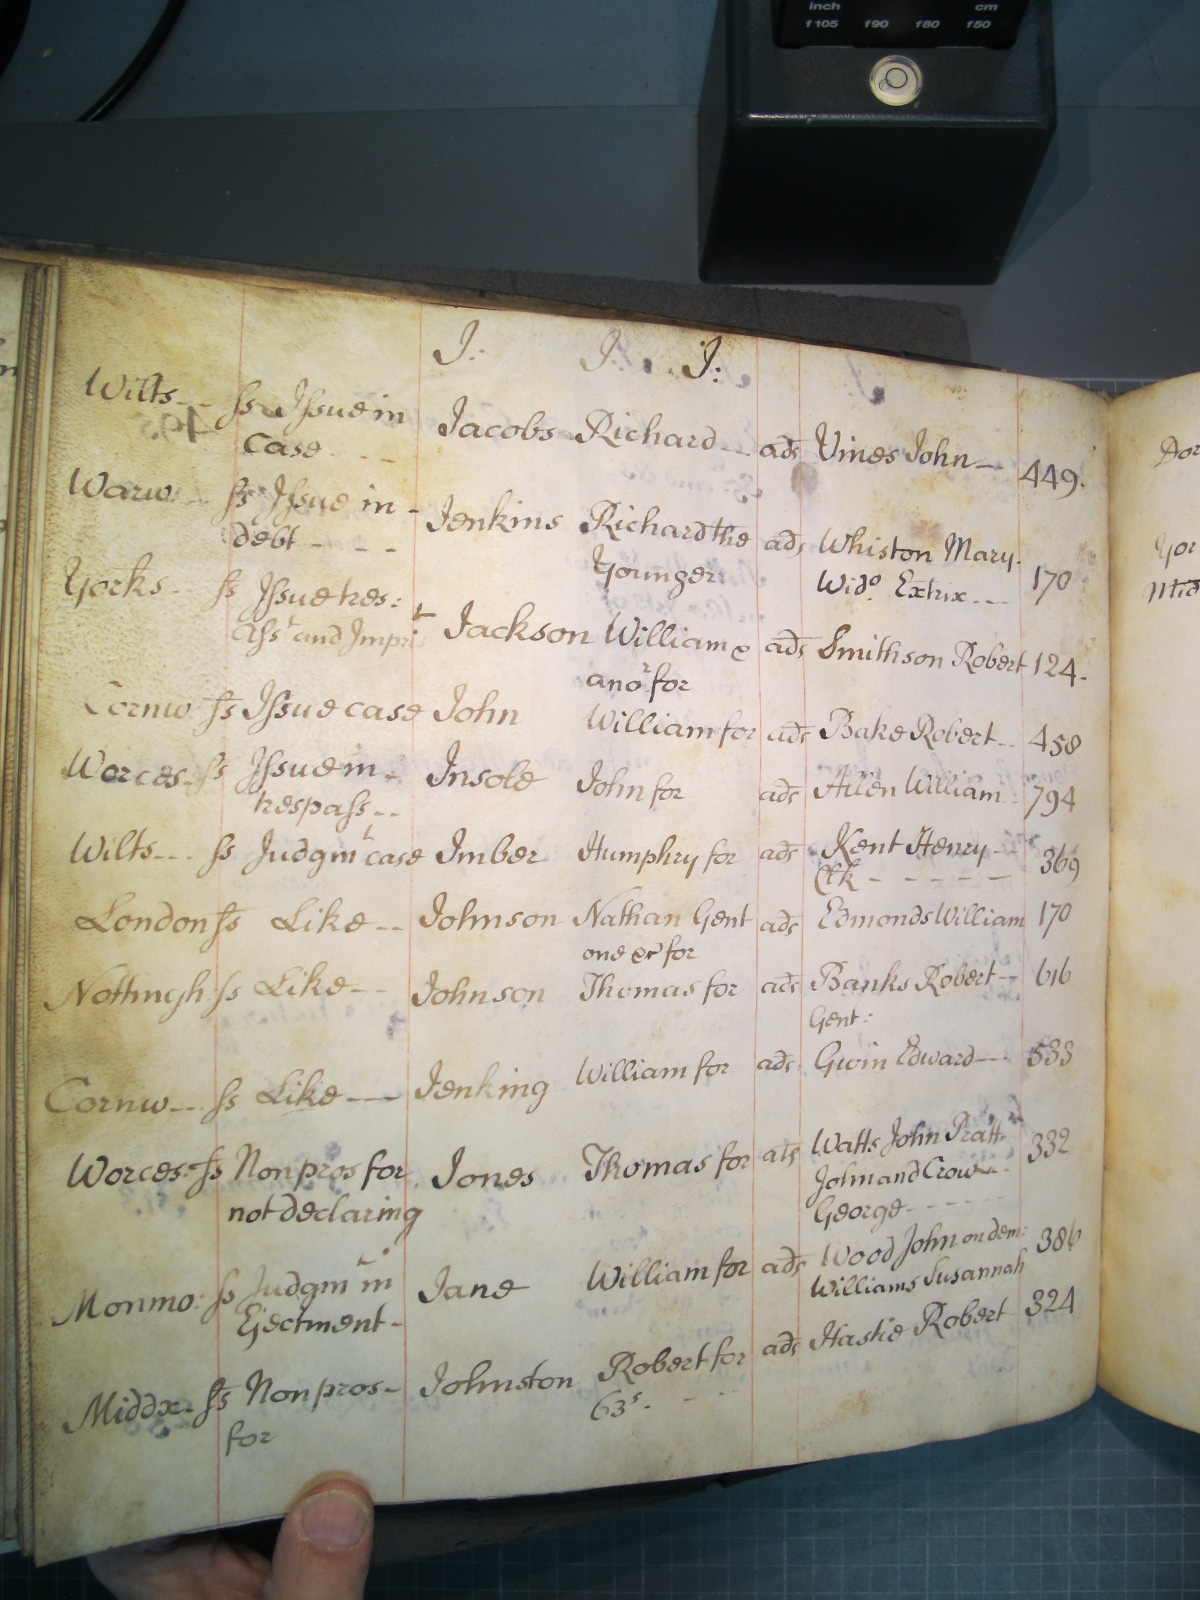 inch cm
f105 f90 f80 f50
J: J: J:
Wilts-- ſs Iſsue in Jacobs Richard-- ads Vines John-- 449.
case - - -
Warw: -- ſs Iſsue in - Jenkins Richard the ads Whiston Mary- 170
debt - - - Younger: Widº. Extrix---
Yorks- ſs Iſsue tres: Jackson William & ads Smithson Robert 124-
Aſst and Impri t anor for
Cornw ſs Iſsue case John William for ads Bake Robert-- 458
Worces- ſs Iſsue in-- Insole John for ads Allen William-- 794
trespaſs--
Wilts--- ſs Judgmt case Imber Humphry for ads Kent Henry-- 369
Clk - - - - -
London ſs Like-- Johnson Nathan Gent ads Edmonds William 170
one &c for
Nottingh ſs Like-- Johnson Thomas for ads Banks Robert-- 616
Gent:
Cornw-- ſs Like-- Jenking William for ads Gwin Edward--- 533
Worces: ſs Non pros for Jones Thomas for ats Watts John Pratt- 332
not declaring John and Crow--
George - - - -
Monmo: ſs Judgmt in Jane William for ads Wood John on dem: 386
Ejectment- Williams Susannah
Middx- ſs Non pros- Johnston Robert for ads Hastie Robert- 324
for 63s. - -
Dor
Yor